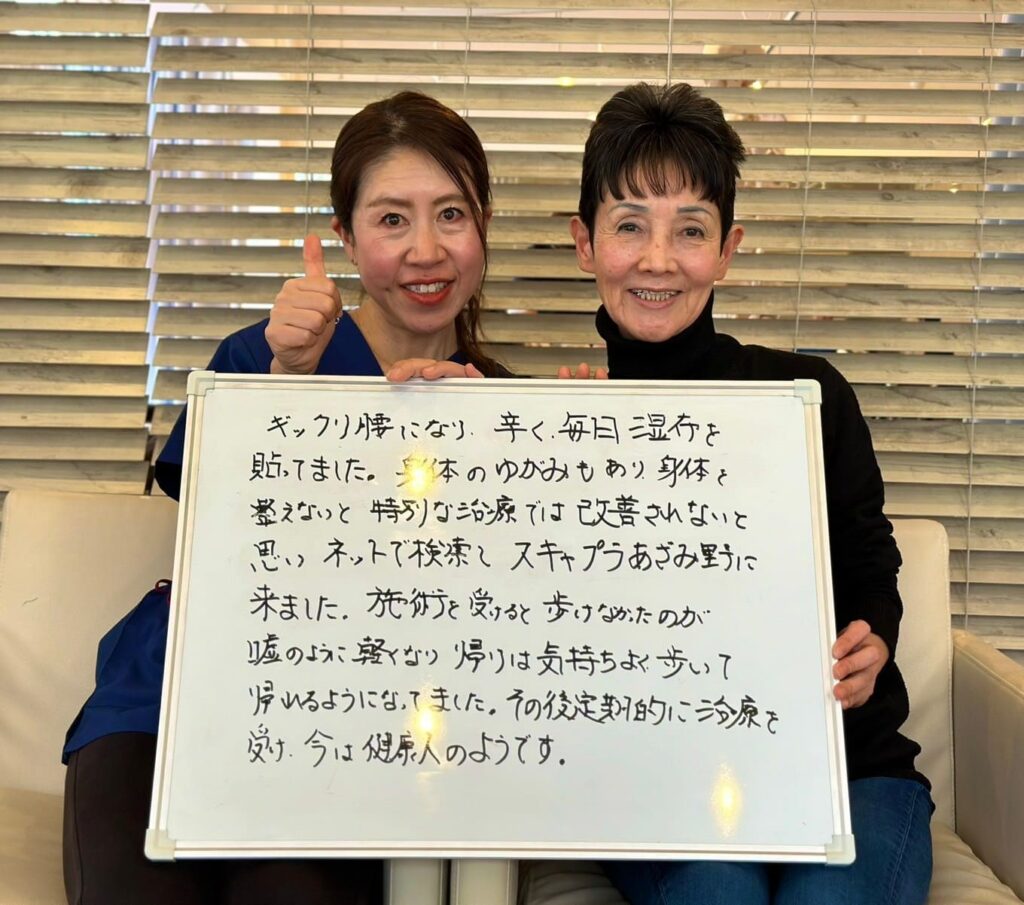 ギックリ腰になり、辛く、毎日湿布を
貼ってました。身体のゆがみもあり身体を
整えないと特別な治療では改善されないと
思い ネットで検索して スキャプラあざみ野に
来ました。施術を受けると歩けなかったのが
嘘のように軽くなり 帰りは気持ちよく歩いて
帰れるようになってました。その後定期的に治療を
受け、今は健康人のようです。